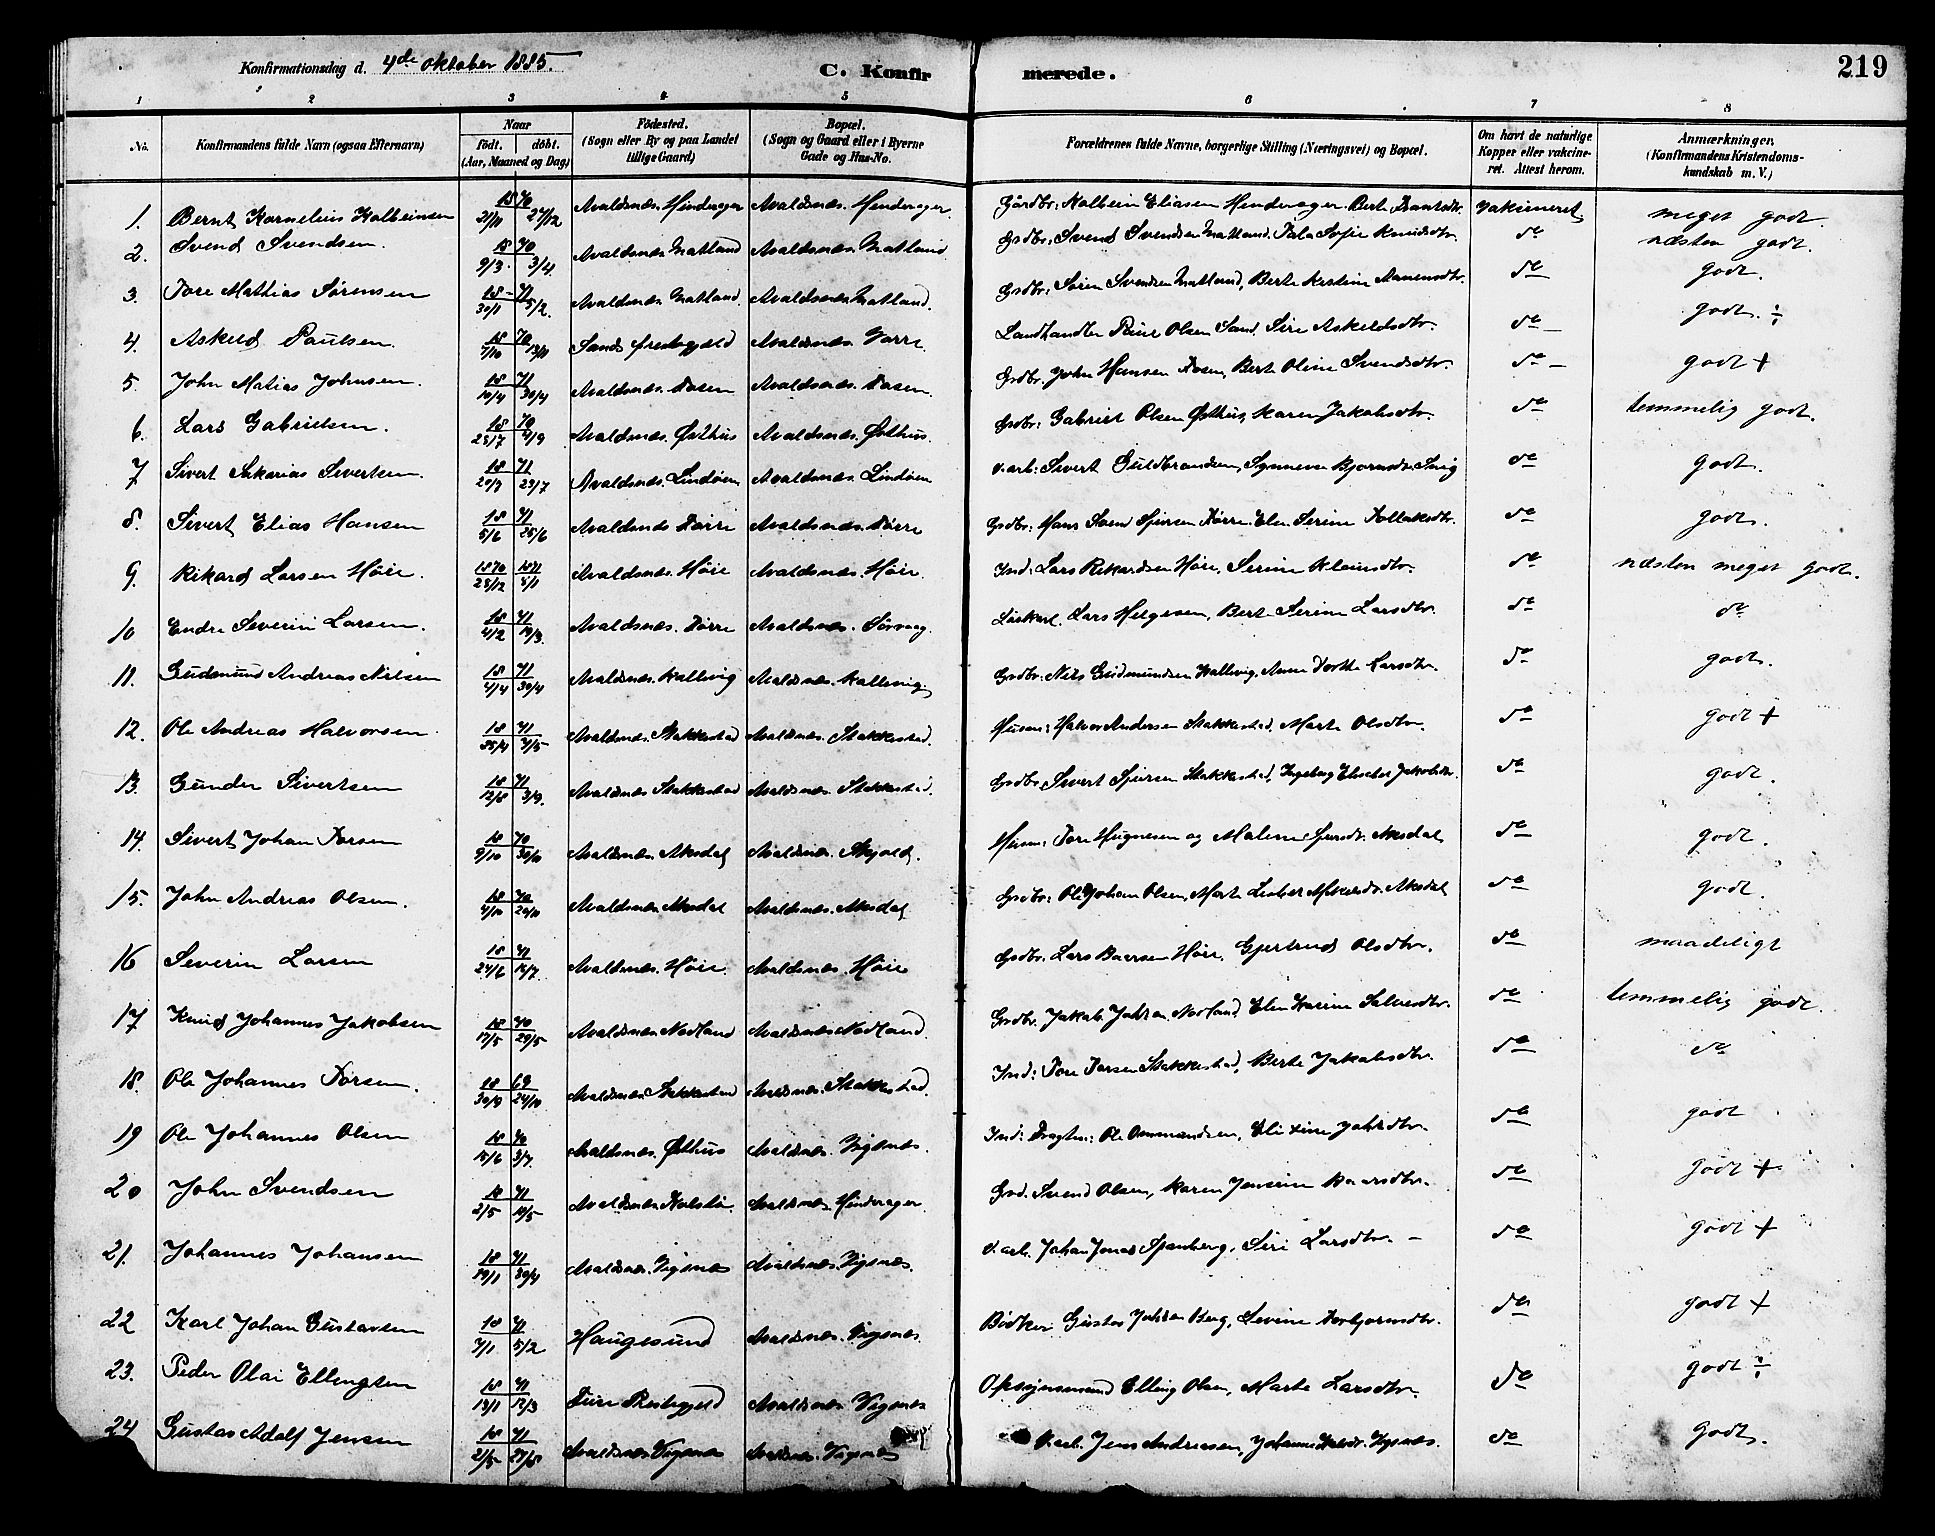 Konfirmationsdag d. 4de oktober 1885.
C. Konfirmerede.
219
1 2 3 4 5 6 7 8
No. Konfirmandens fulde Navn (ogsaa Efternavn) Naar födt. döbt. (Aar, Maaned og Dag) Födested. (Sogn eller By og paa Landet tillige Gaard) Bopæl. (Sogn og Gaard eller i Byerne Gade og Hus-No. Forældrenes fulde Navne, borgerlige Stilling (Næringsvei) og Bopæl. Om havt de naturlige Kopper eller vakcineret. Attest herom. Anmærkninger. (Konfirmandens Kristendomskundskab m. V.)
1. Bernt Kornelius Kolbeinsen 1870 21/11 27/12 Avaldsnæs. Hinderager Avaldsnæs. Hinderager Gårdbr: Kolbein Eliasen Hinderager. Vakcineret meget godt.
2. Svend Svendsen. 18 70 9/3 3/4 Avaldsnæs. Matland Avaldsnæs. Matland Grdbr: Svend Svendsen Matland. Sofie Knudsdtr. do næsten godt.
3. Tore Mathias Sørensen 18 71 30/1 5/2 Avaldsnæs. Matland. Avaldsnæs. Matland. Grdbr: Søren Svendsen Matland, Berte Kristine do godt.
4. Askild Paulsen. 18 70 7/10 13/11 Sands Prestegjeld Avaldsnæs. Landhandler Olsen Sand. Siri Askeldsdtr. do godt. ÷
5. John Matias Johnsen. 18 71 10/4 30/4 Avaldsnæs. Avaldsnæs. Grdbr. John Hansen Berte Oline Svendsdtr. do godt +
6. Lars Gabrielsen. 18 70 25/7 4/9 Avaldsnæs. Østhus Avaldsnæs. Østhus. Grdbr: Gabriel Olsen Østhus, Karen Jakobsdtr. do temmelig godt.
7 Sivert Sakarias Sivertsen 18 71 23/7 Avaldsnæs. Lindøen Avaldsnæs. Lindøen Sivert Guldbrandsen, Synneva Bjørnsdtr. do godt.
8. Sivert Elias Hansen 18 71 5/6 25/6 Avaldsnæs Førre Avaldsnæs. Førre Grdbr: Hans Førre. Elen Serine do godt.
9. Rikard Larsen Høie. 1870 1871 28/12 8/1 Avaldsnæs. Høie Avaldsnæs. Høie. Ind: Lars Rikardsen Høie, Serine do næsten meget godt.
10 Endre Severin Larsen. 18 71 4/2 19/3. Avaldsnæs. Førre Avaldsnæs. Sørvaag. Løskarl. Lars Helgesen, Berte Serine Larsdtr. do do
11. Gudmund Andreas Nilsen 18 71 4/4 30/4 Avaldsnæs. Kallevig Avaldsnæs. Kallevig. Grdbr: Nils Gudmundsen Kallevig, Anne Dorthe Larsdtr. do godt.
12. Ole Andreas Halvorsen 18 71 25/4 Avaldsnæs. Stakkestad Avaldsnæs. Stakkestad. Husm: Halvor Andersen Stakkestad, Marta Olsdtr. do godt +
13. Gunder Sivertsen 18 71 12/8 3/9. Avaldsnæs Stakkestad Avaldsnæs. Stakkestad. Grdbr. Sivert Stakkestad, Ingeborg Elisabet Jakobsdtr. do godt.
14. Sivert Johan Torsen 18 70 9/10 30/10 Avaldsnæs. Aksdal Avaldsnæs. Skjold. Husm: Tore Hugnesen og Malene Aksdal do godt.
15. John Andreas Olsen. 18 70 4/10 Avaldsnæs. Aksdal Avaldsnæs. Aksdal Grdbr: Ole Johan Olsen, Marta Lisbet Aksdal do godt.
16 Severin Larsen 18 71 24/6 16/7. Avaldsnæs. Høie. Avaldsnæs. Høie Grdbr. Lars Baarsen Høie. Gjertrud Olsdtr. do maadeligt
17 Knud Johannes Jakobsen 18 70 17/5 29/5 Avaldsnæs. Nodland Avaldsnæs Nodland. Grdbr. Jakob Nodland, Elen Karine Salvesdtr. do temmelig godt.
18. Ole Johannes Torsen. 18 69 30/9 24/10 Avaldsnæs. Stakkestad Avaldsnæs. Stakkestad. Ind: Tore Torsen Stakkestad, Berte Jakobsdtr. do do
19 Ole Johannes Olsen 18 70 15/6 3/7. Avaldsnæs. Østhus Avaldsnæs. Vigsnæs. Ind: Ole Ommundsen, do godt
20 John Svendsen 18 71 2/5 19/5 Avaldsnæs. Avaldsnæs. Hinderager. Svend Olsen, Karen Jensine Baarsdtr. do godt +
21. Johannes Johansen 18 71 19/1 30/4 Avaldsnæs. Vigsnæs Avaldsnæs. Vigsnæs. V. arb. Johan Jonas Spanberg, Siri Larsdtr. – do godt +
22 Karl Johan Gustavsen 18 71 7/1 5/2 Haugesund Avaldsnæs. Vigsnæs. Bødker Gustav Berg, Sevine Torbjørnsdtr. do godt +
23. Peder Olai Ellingsen 18 71 13/1 12/3 Prestegjeld Avaldsnæs. Vigsnæs Opsynsmand Elling Olsen, Marta Larsdtr. do godt ÷
24 Gustav Adolf Jensen 18 71 2/5 Avaldsnæs. Vigsnæs Avaldsnæs. Vigsnæs V. arb. Jens Andreasen, Johanne Vigsnæs. do godt.